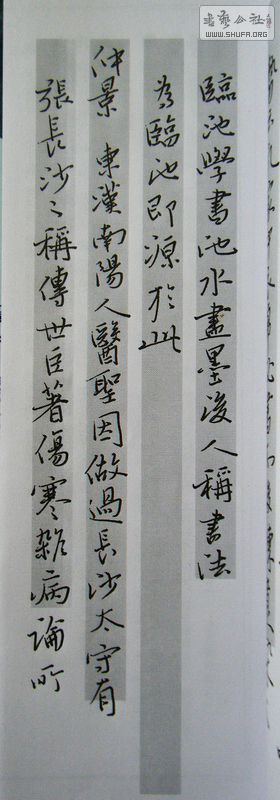 臨池學書池水盡墨後人稱書法
為臨池即源於此
仲景 東漢南陽人醫聖因做過長沙太守有
張長沙之稱傳世巨著傷寒雜病論所
書藝公社
WWW.SHUFA.ORG